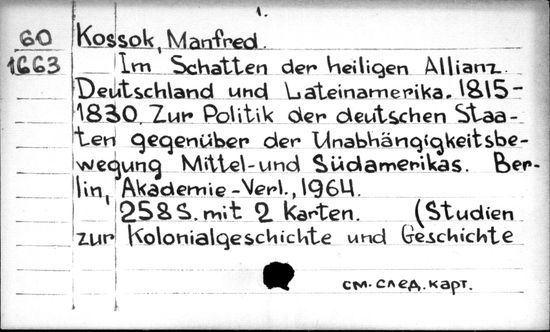 1.
60 Kossok, Manfred.
1663 Im Schatten der heiligen Allianz.
Deutschland und Lateinamerika. 1815-
1830. Zur Politik der deutschen Staa-
ten gegenüber der Unabhängigkeitsbe-
wegung Mittel-und Südamerikas. Ber-
lin, Akademie-Verl., 1964.
258 S. mit 2 Karten. (Studien
zur Kolonialgeschichte und Geschichte
см. след. карт.